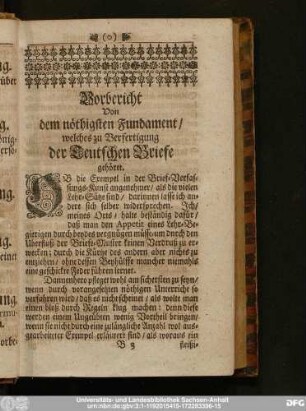 (o)
Vorbericht
Von
dem nöthigsten Fundament/
welches zu Verfertigung
der Teutschen Briefe
gehöret.
OB die Exempel in der Brief-Verfas-
sungs-Kunst angenehmer/ als die vielen
Lehr-Sätze sind/ darinnen lasse ich an-
dere sich selber widersprechen. Ich/
meines Orts/ halte beständig dafür/
daß man den Appetit eines Lehr-Be-
gierigen durch beydes vergnügen müsse/ um durch den
Uberfluß der Briefe-Muster keinen Verdruß zu er-
wecken; durch die Kürtze des andern aber nichts zu
entziehen/ ohne dessen Beyhülffe mancher niemahls
eine geschickte Feder führen lernet.
Dannenhero pfleget wohl am sichersten zu seyn/
wenn durch vorangesetzten nöthigen Unterricht so
verfahren wird/ daß es nicht scheinet/ als wolte man
einen bloß durch Regeln klug machen: denn diese
werden einem Anfänger wenig Vortheil bringen/
wenn sie nicht durch eine zulängliche Anzahl wol aus-
gearbeiteter Exempel erläutert sind/ als woraus ein
B 3
fleißi-
ng.
ng.
Universitäts- und Landesbibliothek Sachsen-Anhalt
urn:nbn:de:gbv:3:1-1192015415-172283396-15